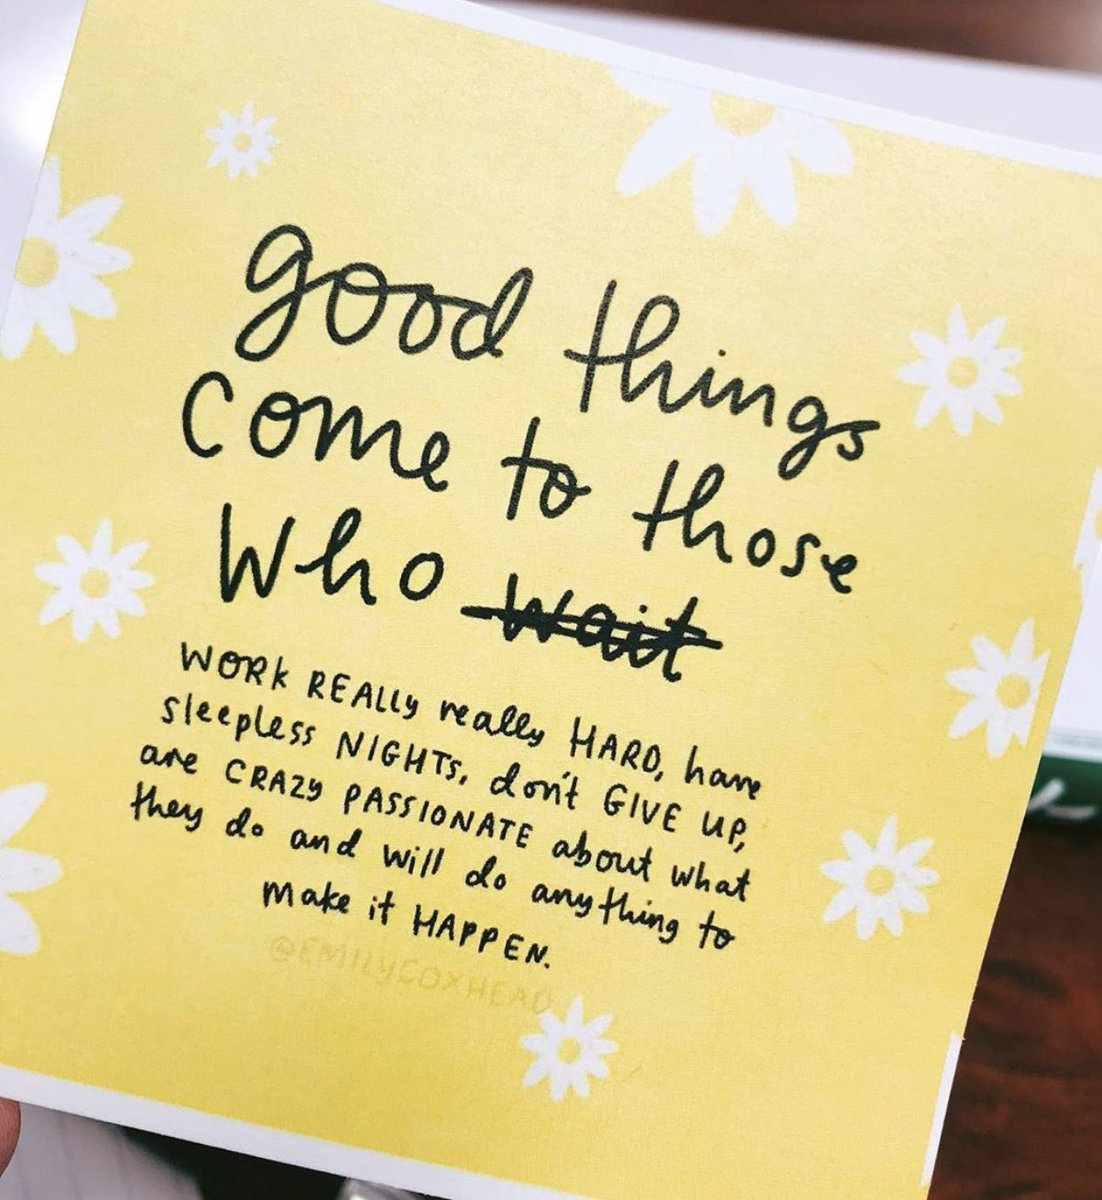 good things
come to those
who wait
WORK REALLY really HARD, have
sleepless NIGHTS, don't GIVE UP,
are CRAZY PASSIONATE about what
they do and will do anything to
make it HAPPEN.
@EMILYCOXHEAD